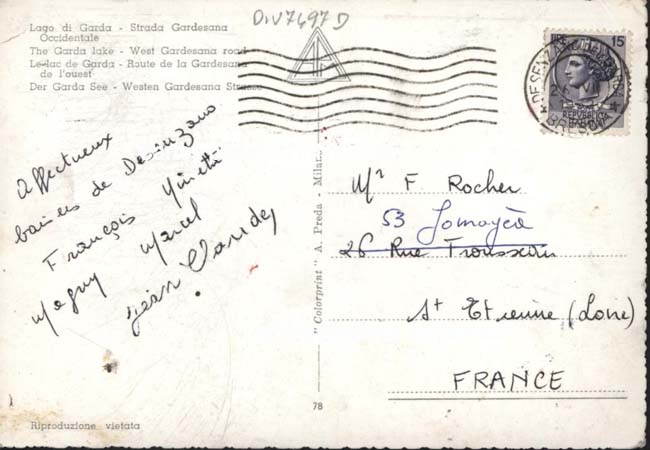 DIV7497D
Lago di Garda - Strada Gardesana
Occidentale
The Garda lake - West Gardesana road
Le lac de Garda - Route de la Gardesana
de l'ouest
Der Garda See - Westen Gardesana
Affectueux
baisers de Desenzano
François
Maguy Marcel
Jean
"Colorprint" A. Preda - Milano
78
Riproduzione vietata
LIRE 15
REPUBBLICA
BRESCIA
Mr F. Rocher
53
26 Rue
St Etienne (Loire)
FRANCE